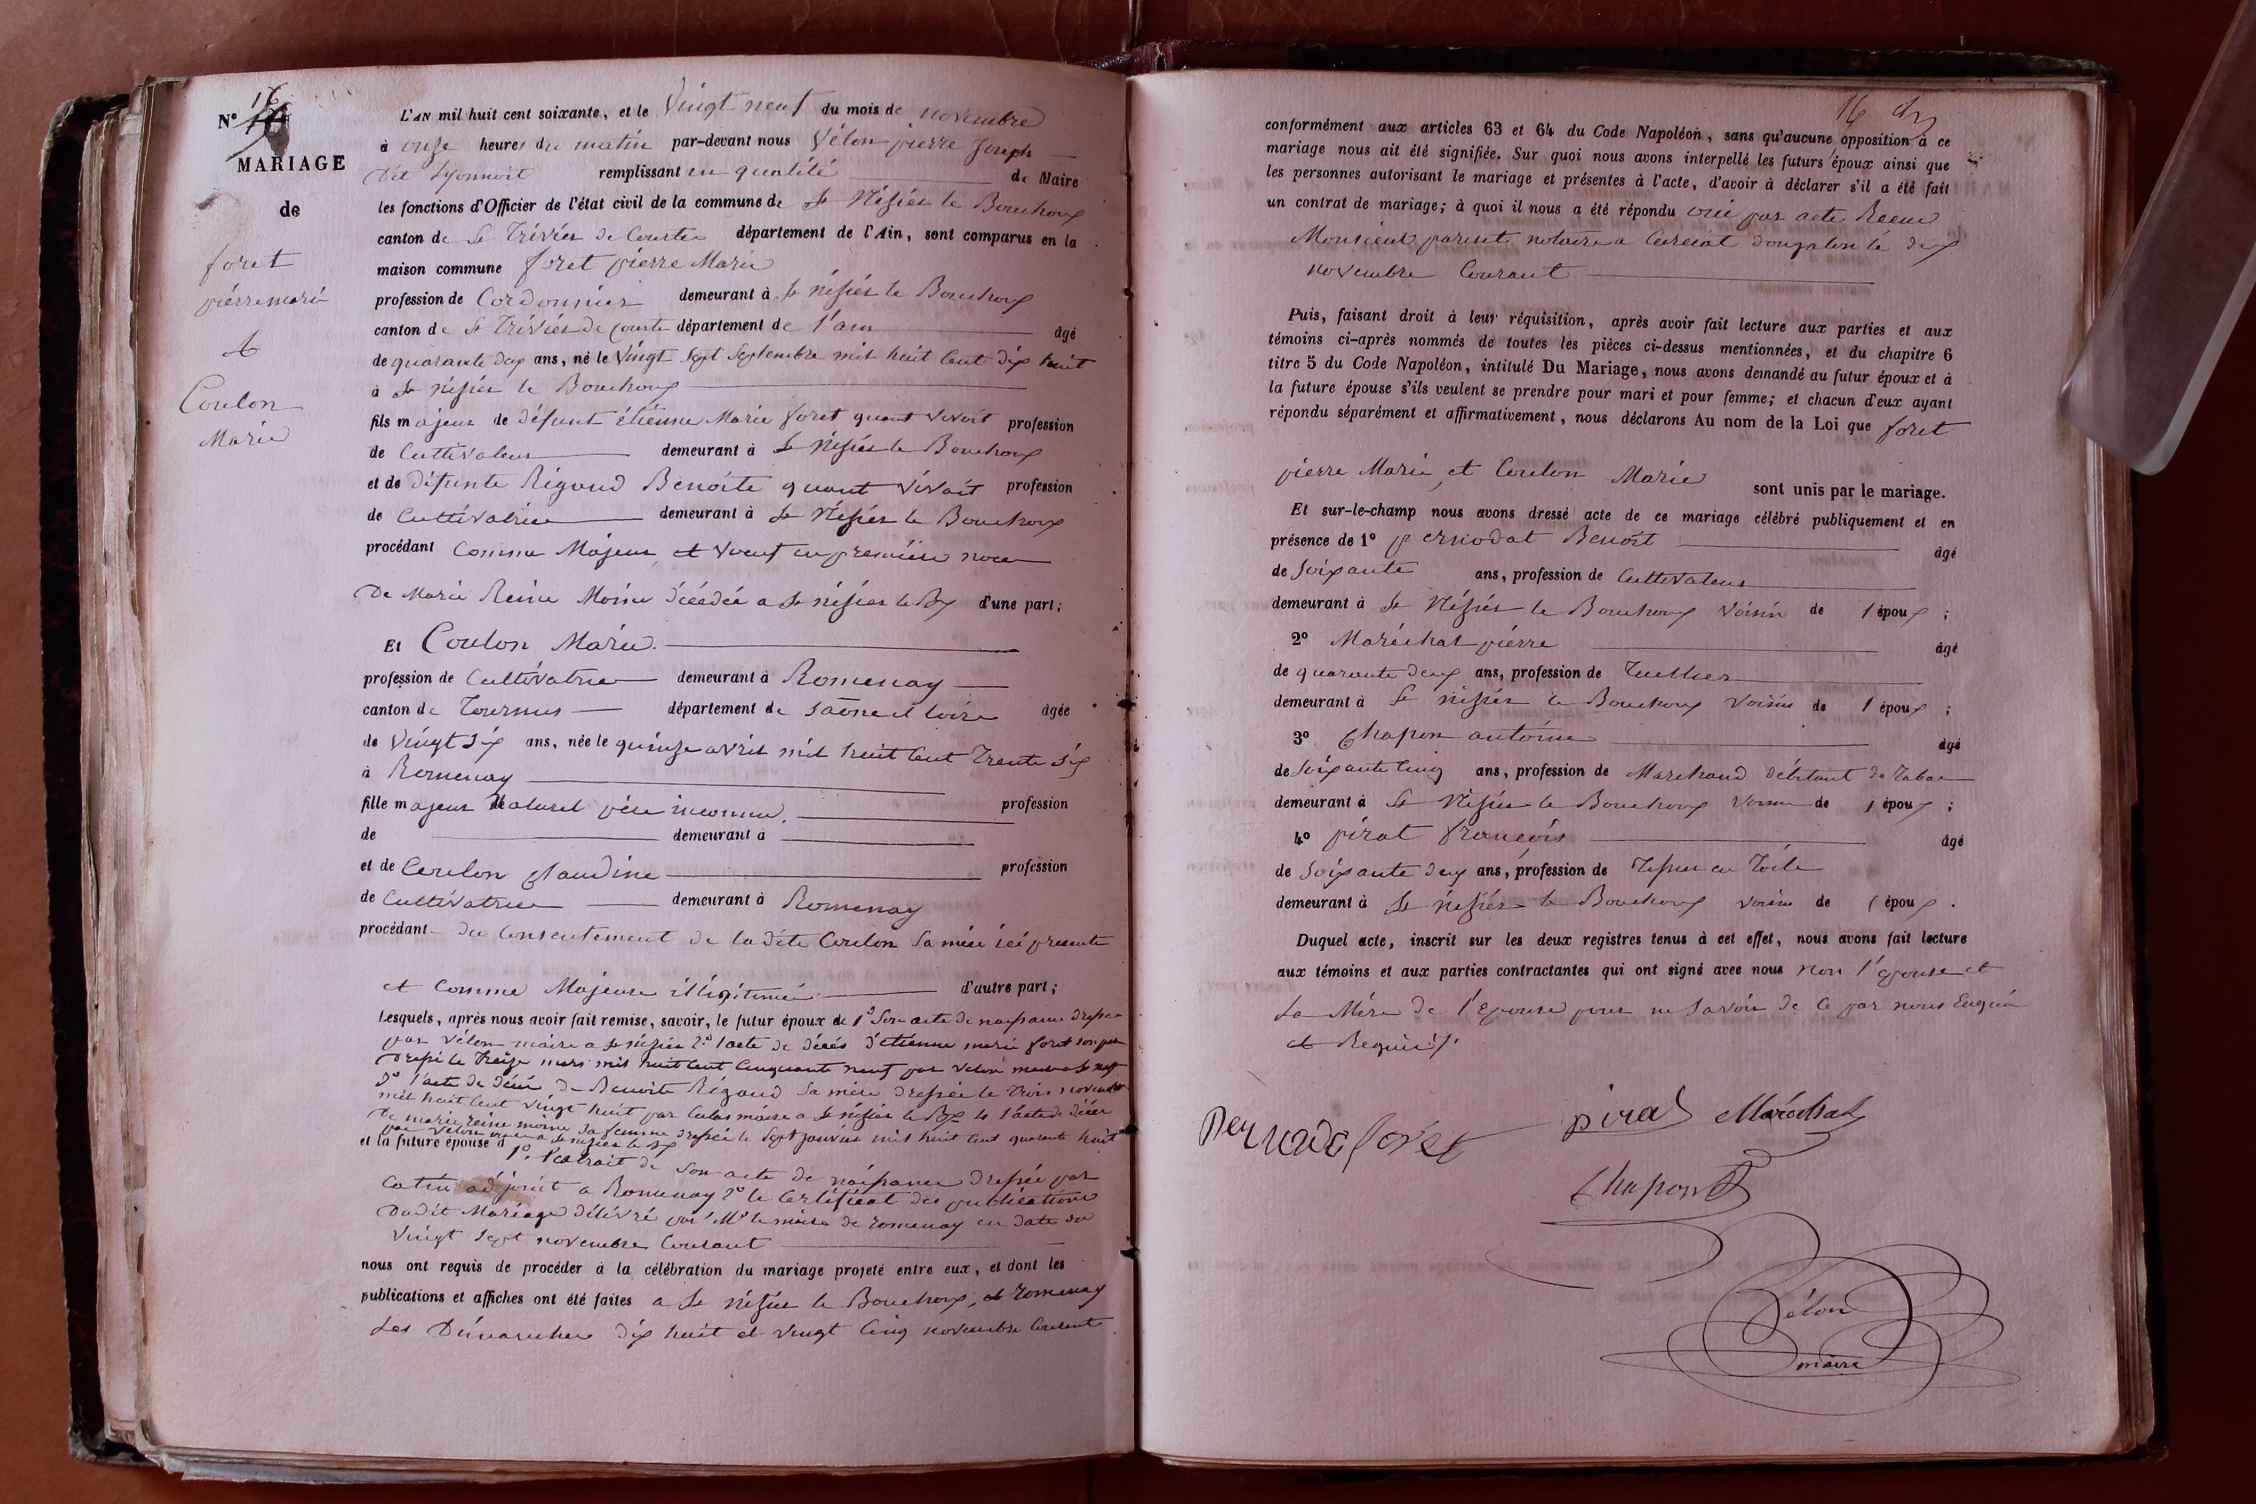 N° 16
MARIAGE
de
foret
pierre marie
&
Coulon
Marie
L'AN mil huit cent soixante, et le Vingt neuf du mois de novembre
à onze heures du matin par-devant nous Vélon pierre Joseph
dit Lyonnoit remplissant en qualité de Maire
les fonctions d'Officier de l'état civil de la commune de St Nisier le Bouchoux
canton de St Trivier de Courtes département de l'Ain, sont comparus en la
maison commune foret pierre Marie
profession de Cordonnier demeurant à St nisier le Bouchoux
canton de St Trivier de Courtes département de l'ain âgé
de quarante deux ans, né le Vingt sept septembre mil huit cent dix huit
à St nisier le Bouchoux
fils majeur de défunt étienne Marie foret quant vivoit profession
de Cultivateur demeurant à St Nisier le Bouchoux
et de défunte Rigaud Benoîte quant vivait profession
de Cultivatrice demeurant à St Nisier le Bouchoux
procédant comme Majeur et veuf en première noce
De Marie Reine Moine décédée a St nisier le Bx d'une part;
Et Coulon Marie
profession de Cultivatrice demeurant à Romenay
canton de Tournus département de saône et loire âgée
de Vingt six ans, née le quinze avril mil huit cent trente six
à Romenay
fille majeur Naturel père inconnu. profession
de demeurant à
et de Coulon Claudine profession
de Cultivatrice demeurant à Romenay
procédant du consentement de la dite Coulon sa mère ici presente
et comme Majeure illégitimée d'autre part;
Lesquels, après nous avoir fait remise, savoir, le futur époux de 1° Son acte de naissance dressé
par Vélon maire a St nisier 2° l'acte de décès d'étienne marie foret son père
dressé le treize mars mil huit cent cinquante neuf par Velon maire a St nisier
3° l'acte de décé de Benoite Rigaud sa mère dressée le trois novembre
mil huit cent vingt huit par Colas maire a St nisier le Bx 4 l'acte de décer
de marie reine moine sa femme dressée le sept janvier mil huit cent quarante huit
par Vélon maire a St nisier le Bx
et la future épouse d 1° l'extrait de son acte de naissance dressée par
Catin adjoint a Romenay 2° le Certificat des publications
dudit Mariage délivré par Mr le maire de romenay en date du
Vingt sept novembre courant
nous ont requis de procéder à la célébration du mariage projeté entre eux, et dont les
publications et affiches ont été faites a St nisier le Bouchoux, et romenay
les Dimanches dix huit et vingt cinq novembre courant
16
conformément aux articles 63 et 64 du Code Napoléon, sans qu'aucune opposition à ce
mariage nous ait été signifiée. Sur quoi nous avons interpellé les futurs époux ainsi que
les personnes autorisant le mariage et présentes à l'acte, d'avoir à déclarer s'il a été fait
un contrat de mariage; à quoi il nous a été répondu oui par acte Recue
Monsieur parent notaire a Curciat dongalon le deux
novembre Courant
Puis, faisant droit à leur réquisition, après avoir fait lecture aux parties et aux
témoins ci-après nommés de toutes les pièces ci-dessus mentionnées, et du chapitre 6
titre 5 du Code Napoléon, intitulé Du Mariage, nous avons demandé au futur époux et à
la future épouse s'ils veulent se prendre pour mari et pour femme; et chacun d'eux ayant
répondu séparément et affirmativement, nous déclarons Au nom de la Loi que foret
pierre Marie, et Coulon Marie sont unis par le mariage.
Et sur-le-champ nous avons dressé acte de ce mariage célébré publiquement et en
présence de 1° pernodat Benoît âgé
de soixante ans, profession de Cultivateur
demeurant à St Nisier le Bouchoux voisin de l époux ;
2° Maréchal pierre âgé
de quarante deux ans, profession de Tuillier
demeurant à St nisier le Bouchoux voisin de l époux ;
3° Chapon antoine âgé
de soixante Cinq ans, profession de Marchand débitant de Tabac
demeurant à St Nisier le Bouchoux voisin de l époux ;
4° pirat françois âgé
de soixante deux ans, profession de Tisseur en Toile
demeurant à St nisier le Bouchoux voisin de l époux .
Duquel acte, inscrit sur les deux registres tenus à cet effet, nous avons fait lecture
aux témoins et aux parties contractantes qui ont signé avec nous non l'épouse et
la Mère de l'épouse pour ne savoir de ce par nous Enquis
et Requis
foret pirat Maréchal
Chapon
Vélon
maire